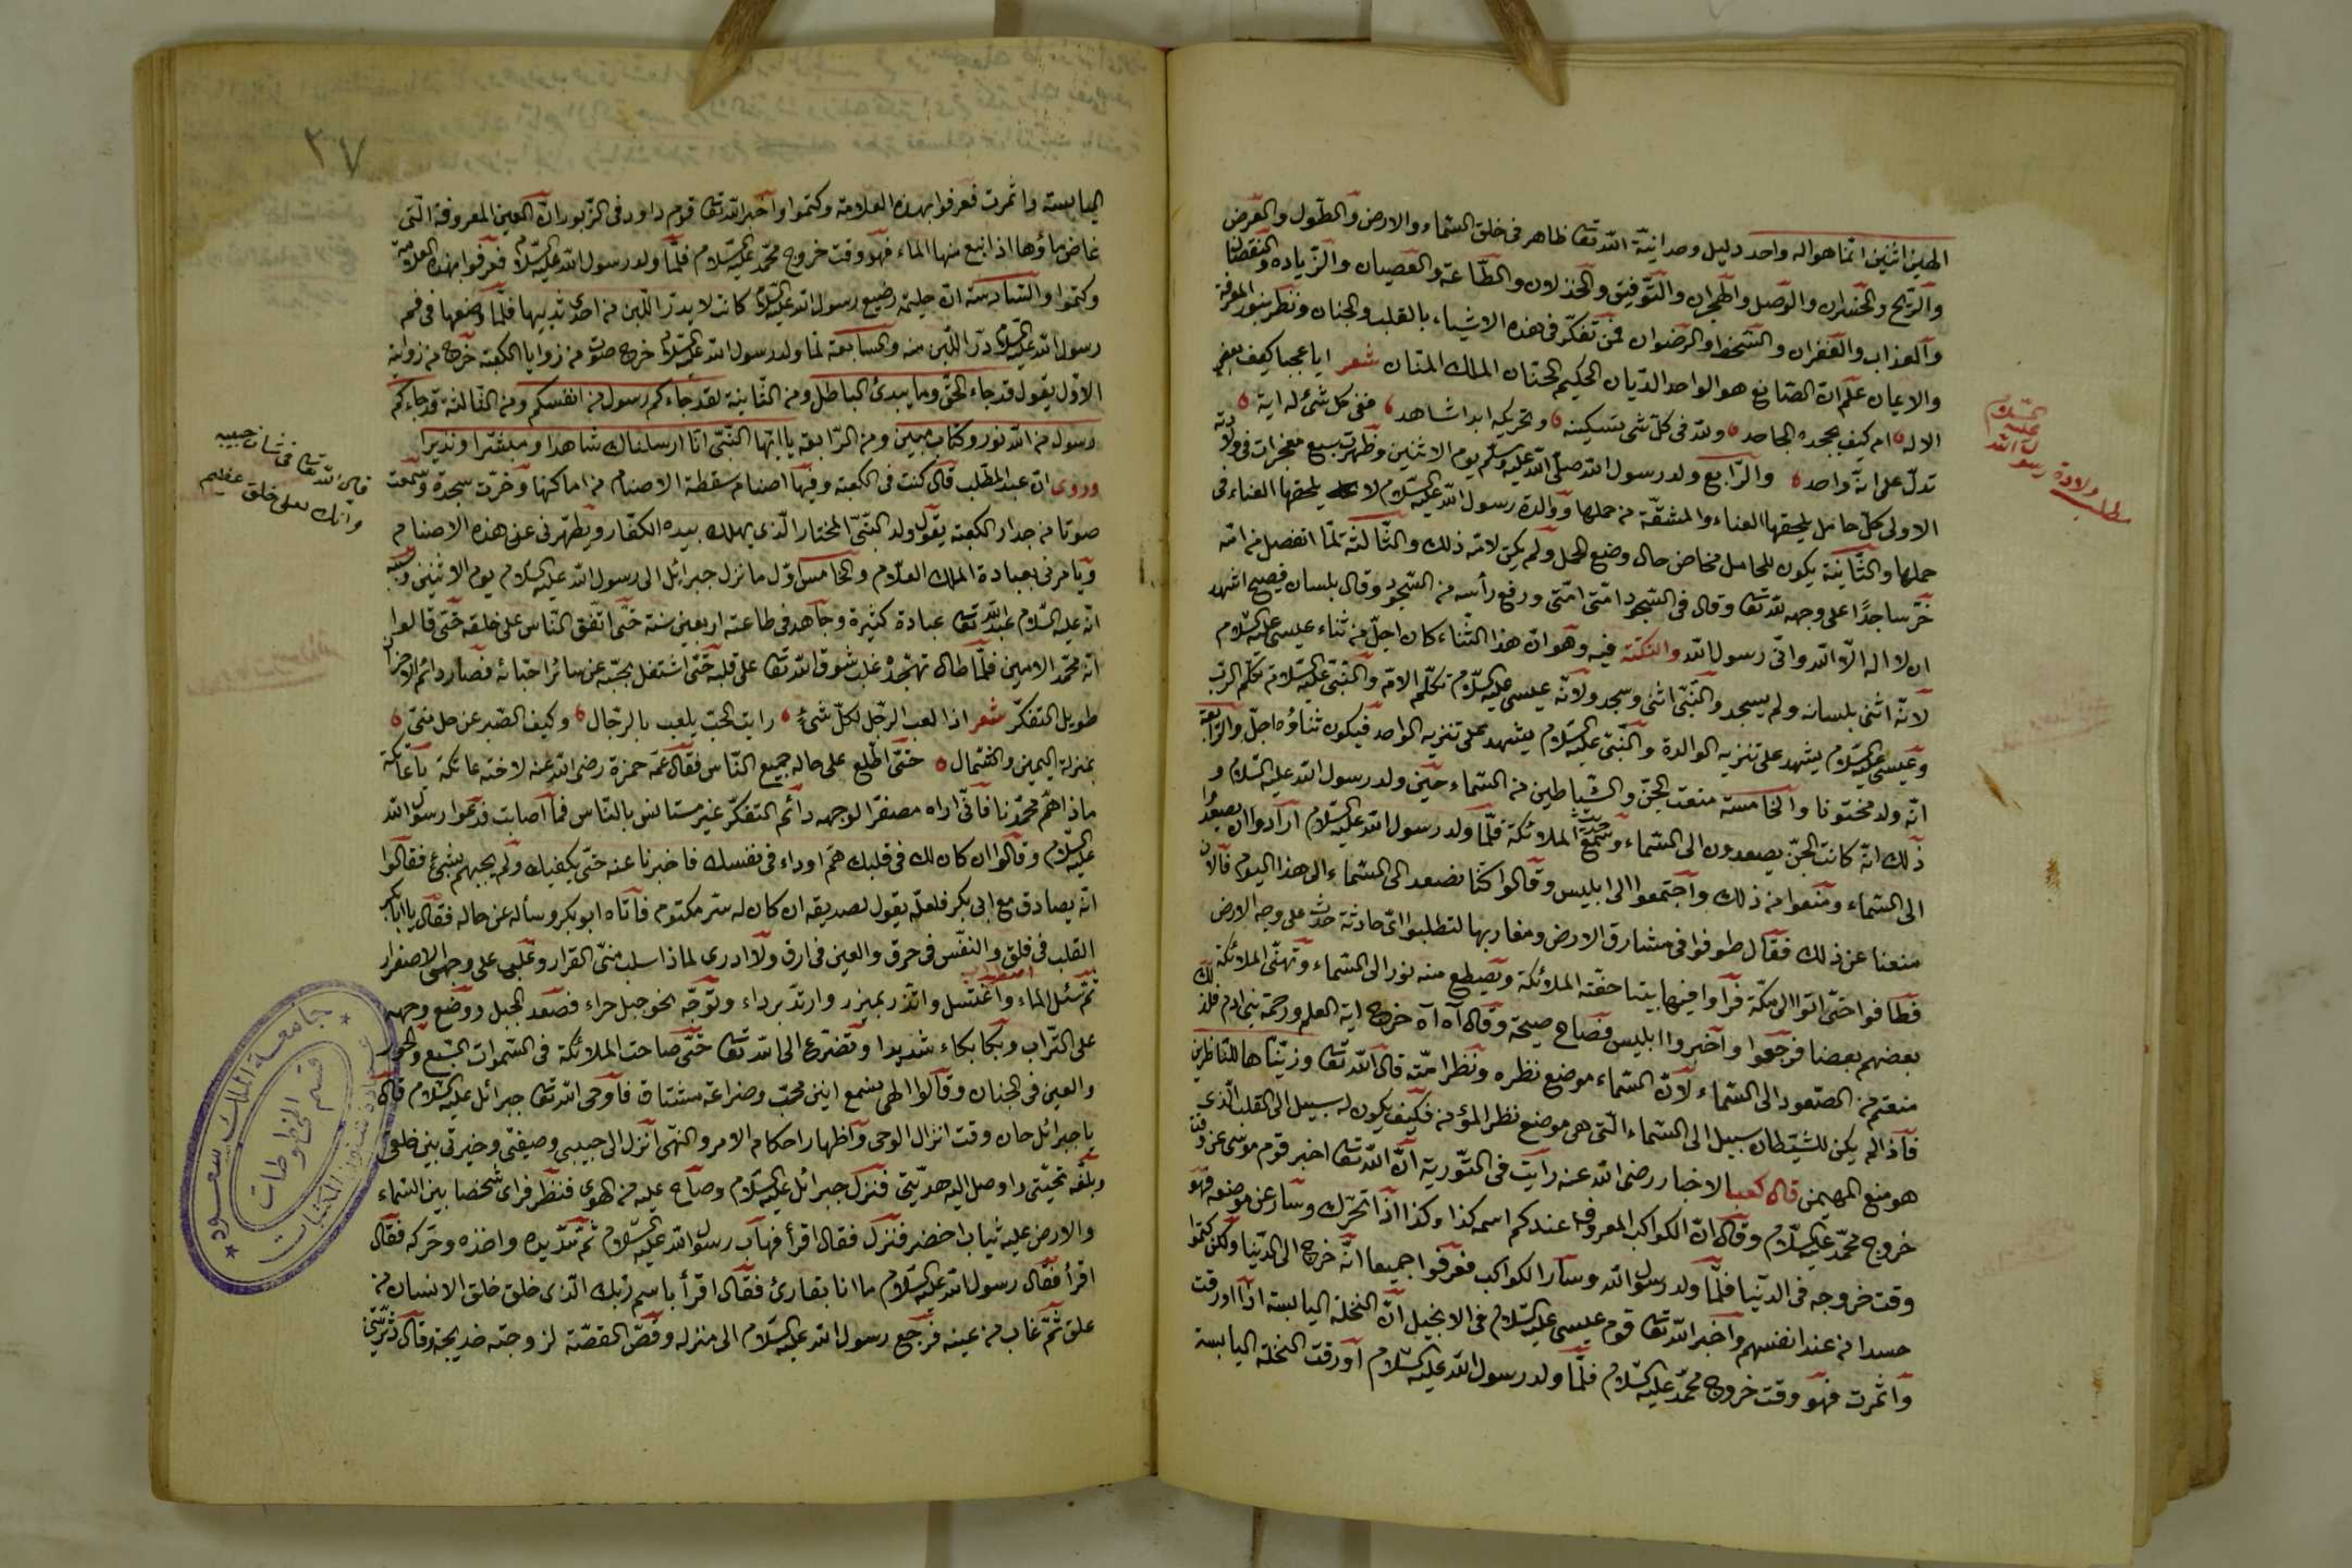 الهين اثنين انما هو اله واحد دليل وحدانية الله تعا ظاهر فى خلق السماء والارض والطول والعرض
والربح والخسران والوصل والهجران والتوفيق والخذلان والطاعة والعصيان والزيادة والنقصان
والعذاب والغفران والسخط والرضوان فمن تفكر فى هذه الاشياء بالقلب والجنان ونظر بنور المعرفة
والاعيان علم ان الصانع هو الواحد الديان الحكيم الحنان الملك المنان شعر ايا عجبا كيف يعصى
الاله ام كيف يجحده الجاحد ولله فى كل شئ تسكينه وتحريكه ابدا شاهد ففى كل شئ له اية
تدل على انه واحد والرابع ولد رسول الله صلى الله عليه وسلم يوم الاثنين وظهرت سبع معجزات فى ولادته
الاولى كل حامل يلحقها العناء والمشقة من حملها ووالدة رسول الله عليه السلام لا يلحقها العناء فى
حملها والثانية يكون للحامل مخاض حال وضع الحمل ولم يكن لامه ذلك والثالثة لما انفصل من امه
خر ساجدا على وجهه لله تعا وقال فى السجود امتى امتى ورفع رأسه من السجود وقال بلسان فصيح اشهد
ان لا اله الا الله وانى رسول الله والنكتة فيه وهو ان هذا الثناء كان اجل من ثناء عيسى عليه السلام
لانه اثنى بلسانه ولم يسجد والنبى اثنى وسجد ولانه عيسى عليه السلام تكلم الام والنبى عليه السلام تكلم الرب
وعيسى عليه السلام يشهد على تنزيه الوالدة والنبى عليه السلام يشهد على تنزيه الواحد فيكون ثناؤه اجل والرابعة
انه ولد مختونا والخامسة منعت الجن والشياطين من السماء حين ولد رسول الله عليه السلام و
ذلك انه كانت الجن يصعدون الى السماء وتسمع حديث الملائكة فلما ولد رسول الله عليه السلام ارادوا ان يصعدوا
الى السماء ومنعوا من ذلك واجتمعوا الى ابليس وقالوا كنا نصعد الى السماء الى هذا اليوم فالان
منعنا عن ذلك فقال طوفوا فى مشارق الارض ومغاربها لتطلبوا اى حادثة حدث على وجه الارض
فطافوا حتى اتوا الى مكة فراوا فيها بيتا حفته الملائكة ويسطع منه نور الى السماء وتهنى الملائكة
بعضهم بعضا فرجعوا واخبروا ابليس فصاح صيحة وقال آه آه خرج اية العلم ورحمة بنى ادم فلذلك
منعتم من الصعود الى السماء لان السماء موضع نظره ونظر امته قال الله تعا وزيناها للناظرين
فاذا لم يكن للشيطان سبيل الى السماء التى هى موضع نظر المؤمن فكيف يكون له سبيل الى القلب الذى
هو منبع المهيمن قال كعب الاخبار رضى الله عنه رايت فى التورية ان الله تعا اخبر قوم موسى عن وقت
خروج محمد عليه السلام وقال ان الكواكب المعروف عندكم اسمه كذا وكذا اذا تحرك وسار عن موضعه فهو
وقت خروجه فى الدنيا فلما ولد رسول الله وسار الكواكب فعرفوا جميعا انه خرج الى الدنيا ولكن كتموا
حسدا من عند انفسهم واخبر الله تعا قوم عيسى عليه السلام فى الانجيل ان النخلة اليابسة اذا اورقت
واثمرت فهو وقت خروج محمد عليه السلام فلما ولد رسول الله عليه السلام اورقت النخلة اليابسة
مطلب ولادة رسول الله
عليه السلام
٣٧
اليابسة واثمرت فعرفوا بهذه العلامة وكتموا واخبر الله تعا قوم داود فى الزبور ان العين المعروفة التى
غاض ماؤها اذا نبع منها الماء فهو وقت خروج محمد عليه السلام فلما ولد رسول الله عليه السلام فعرفوا بهذه العلامة
وكتموا والسادسة ان حليمة رضيع رسول الله عليه السلام كانت لا يدر اللبن من احدى ثدييها فلما وضعها فى فم
رسول الله عليه السلام در اللبن منه والسابعة لما ولد رسول الله عليه السلام خرج صوت من زوايا الكعبة خرج من زواية
الاول يقول قد جاء الحق وما يبدئ الباطل ومن الثانية لقد جاءكم رسول من انفسكم ومن الثالثة قد جاءكم
رسول من الله نور وكتاب مبين ومن الرابعة يا ايها النبى انا ارسلناك شاهدا ومبشرا ونذيرا
وروى ان عبد المطلب قال كنت فى الكعبة وفيها اصنام سقطة الاصنام من اماكنها وخرت سجدة وسمعت
صوتا من جدار الكعبة يقول ولد النبى المختار الذى يهلك بيده الكفار ويطهرنى عن هذه الاصنام
ويامرنى بعبادة الملك العلام والخامس اول ما نزل جبرائل الى رسول الله عليه السلام يوم الاثنين وسببه
انه عليه السلام عبد الله تعا عبادة كثيرة وجاهد فى طاعته اربعين سنة حتى اتفق الناس على خلقه حتى قالوا
انه محمد الامين فلما طال تهجده غلب شوق الله تعا على قلبه حتى اشتغل بحبه عن سائر احبائه فصار دائم الاحزان
طويل التفكر شعر اذا لعب الرجل بكل شئ رايت الحب يلعب بالرجال وكيف الصبر عن حل منى
بمنزلة اليمين والشمال حتى اطلع على حاله جميع الناس فقال عمه حمزة رضى الله عنه لاخته عاتكة يا عاتكة
ماذا اهم محمدنا فانى اراه مصفر الوجه دائم التفكر غير مستانس بالناس فما اصابت فدعوا رسول الله
عليه السلام وقالوا ان كان لك فى قلبك هم او داء فى نفسك فاخبرنا عنه حتى يكفيك ولم يجبهم بشئ فقالوا
انه يصادق مع ابى بكر فلعله يقول لصديقه ان كان له سر مكتوم فاتاه ابو بكر وسأله عن حاله فقال يا ابا بكر
القلب فى قلق والنفس فى حرق والعين فى ارق ولا ادرى لماذا سلب منى القرار وغلب على وجهى الاصفرار
ثم سئل الماء واغتسل واتزر بميزر وارتد برداء وتوجه نحو جبل حراء فصعد الجبل ووضع وجهه
على التراب وبكا بكاء شديدا وتضرع الى الله تعا حتى صاحت الملائكة فى السموات السبع والحور
والعين فى الجنان وقالوا الهى نسمع انين محب وضراعة مشتاق فاوحى الله تعا جبرائل عليه السلام قال
يا جبرائل حان وقت انزال الوحى واظهار احكام الامر والنهى انزل الى حبيبى وصفيى وخيرتى بين خلقى
وبلغه تحيتى واوصل اليه هديتى فنزل جبرائل عليه السلام وصاح عليه من الهوى فنظر فراى شخصا بين السماء
والارض عليه ثياب اخضر فنزل فقال اقرأ فهاب رسول الله عليه السلام ثم مد يده واخذه وحركه فقال
اقرأ فقال رسول الله عليه السلام ما انا بقارئ فقال اقرأ باسم ربك الذى خلق خلق الانسان من
علق ثم غاب من عينه فرجع رسول الله عليه السلام الى منزله وقص القصة لزوجته خديجة وقال دثرينى
قال الله تعا فى شان حبيبه
وانك لعلى خلق عظيم
جامعة الملك سعود
قسم المخطوطات
عمادة شئون المكتبات